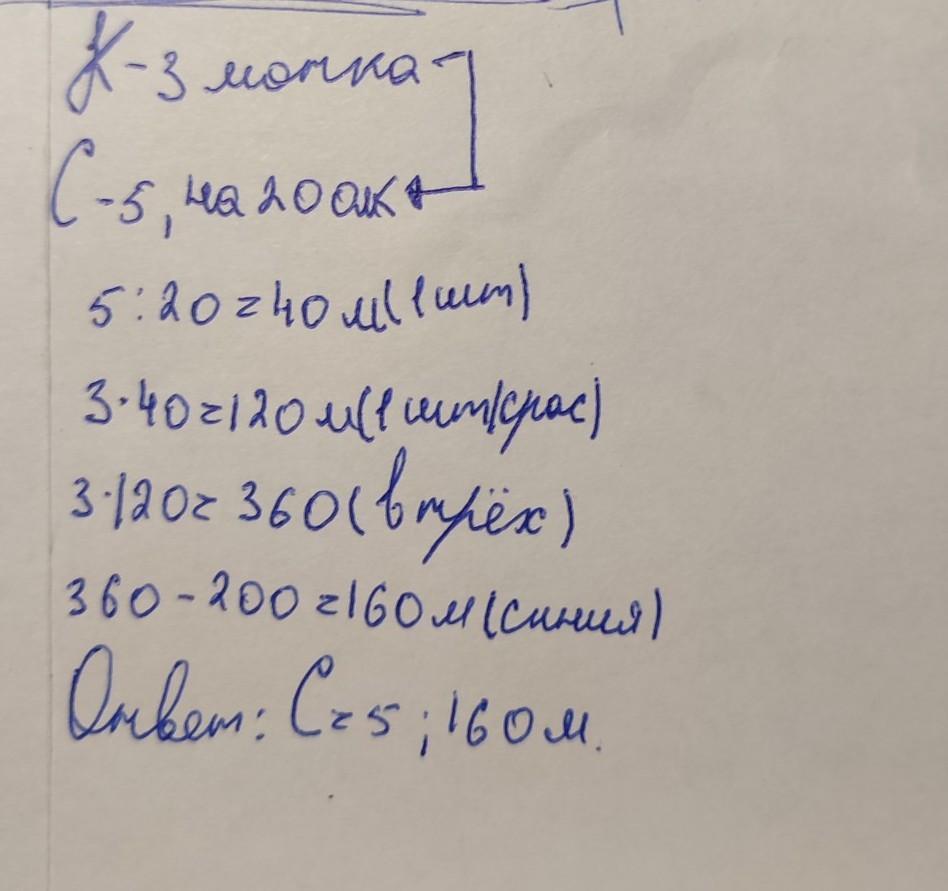 К-3 мотка
С-5, на 200м<
5:20=40м(1шт)
3·40=120м(1шт/крас)
3·120=360(в трёх)
360-200=160м(синия)
Ответ: С=5; 160м.